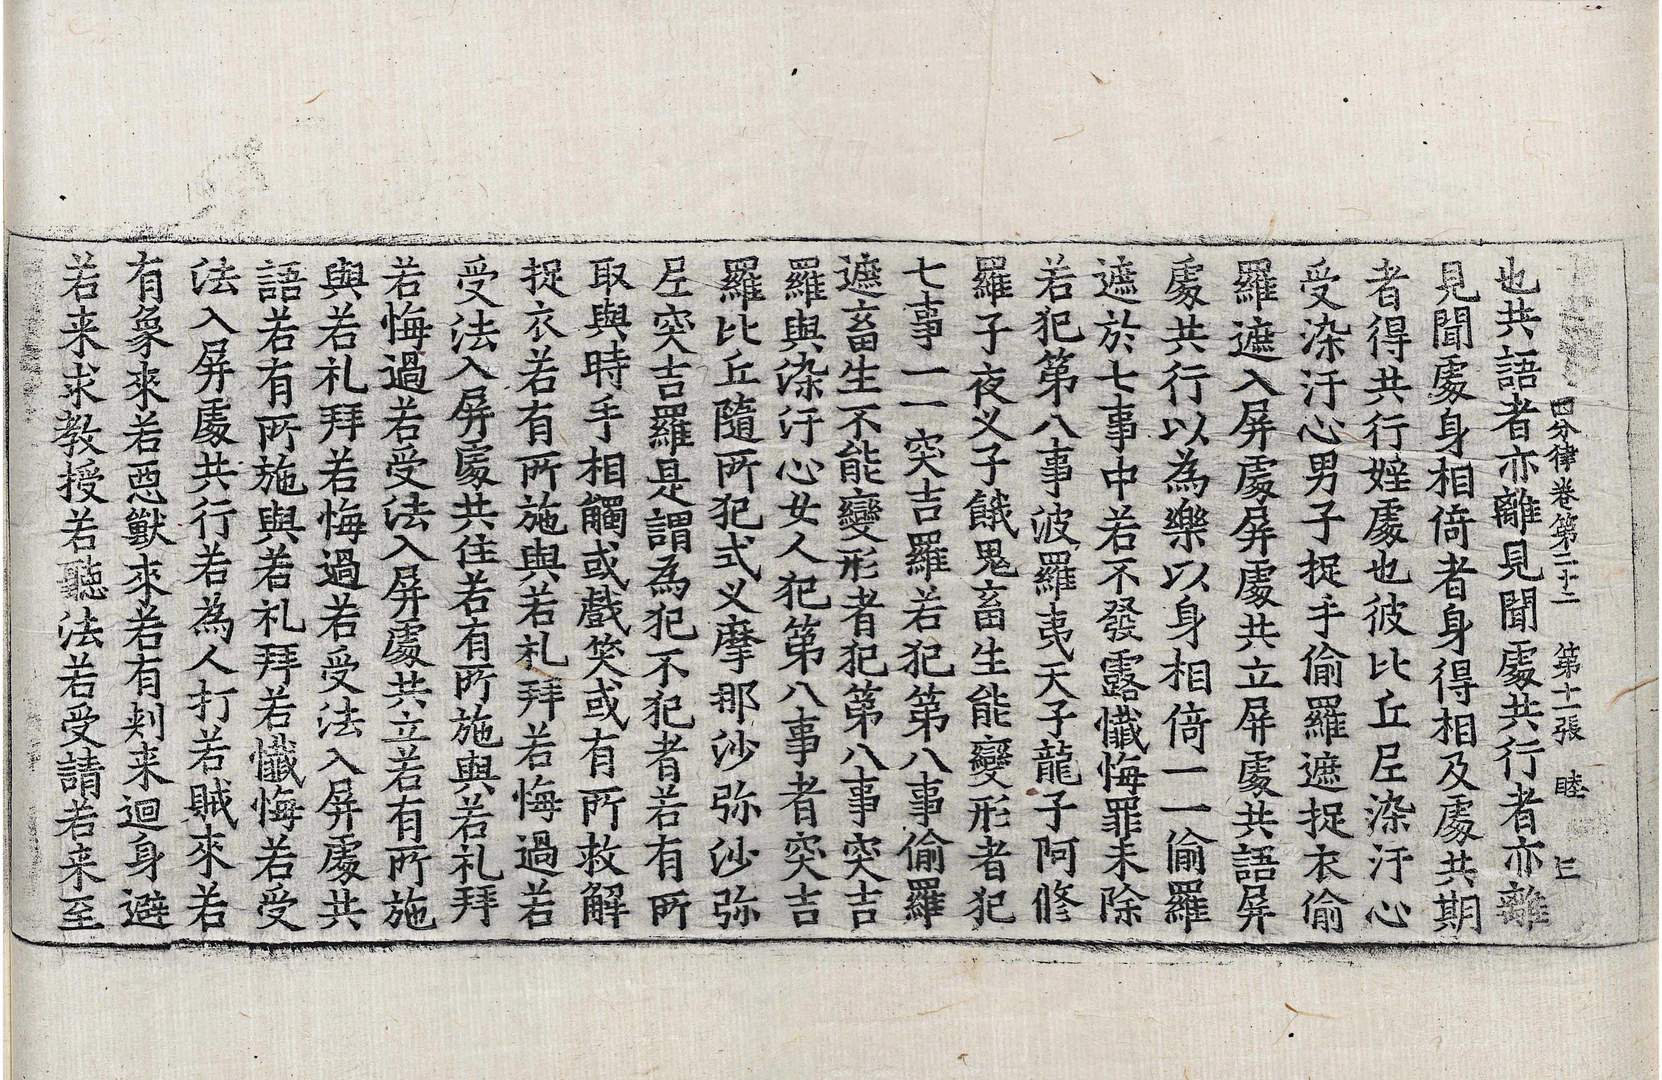 四分律卷第二十二 第十一張 睦 三
也共語者亦離見聞處共行者亦離
見聞處身相倚者身得相及處共期
者得共行婬處也彼比丘𡰱染汙心
受染汙心男子捉手偷羅遮捉衣偷
羅遮入屏處屏處共立屏處共語屏
處共行以為樂以身相倚一一偷羅
遮於七事中若不發露懺悔罪未除
若犯第八事波羅夷天子龍子阿修
羅子夜叉子餓鬼畜生能變形者犯
七事一一突吉羅若犯第八事偷羅
遮畜生不能變形者犯第八事突吉
羅與染汙心女人犯第八事者突吉
羅比丘隨所犯式叉摩那沙弥沙弥
𡰱突吉羅是謂為犯不犯者若有所
取與時手相觸或戲笑或有所救解
捉衣若有所施與若礼拜若悔過若
受法入屏處共住若有所施與若礼拜
若悔過若受法入屏處共立若有所施
與若礼拜若悔過若受法入屏處共
語若有所施與若礼拜若懺悔若受
法入屏處共行若為人打若賊來若
有象來若惡獸來若有刾来迴身避
若来求教授若聽法若受請若来至